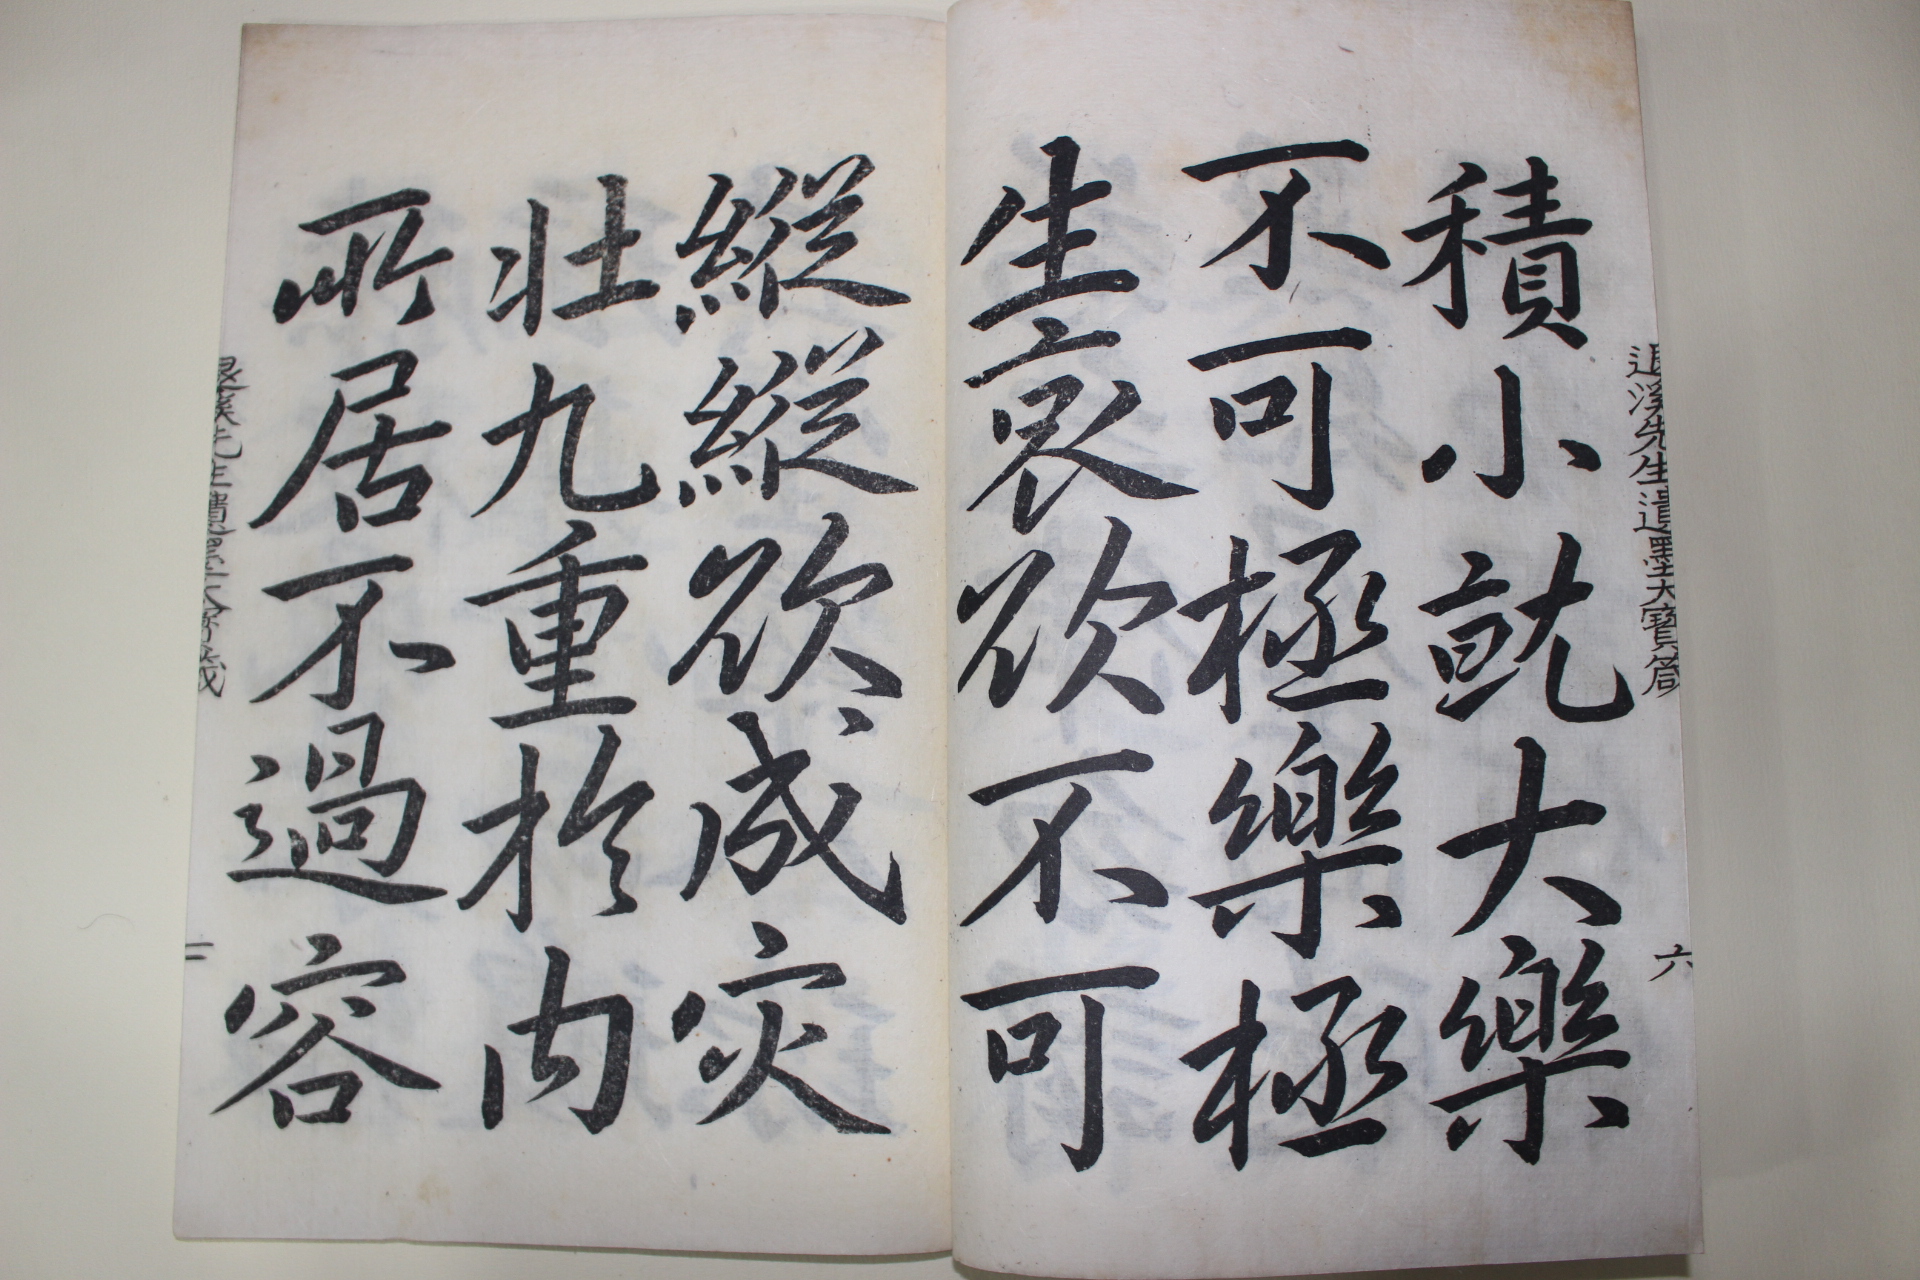 積小就大樂
不可極樂極
生哀欲不可
退溪先生遺墨大寶箴
六
縱縱欲成灾
壯九重於內
所居不過容
退溪先生遺墨大寶箴